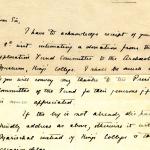 Dear Sir,
I have to acknowledge receipt of your
9th inst intimating a donation from the
Exploration Fund Committee to the Archaeol.
Museum, King's College. I shall be much
if you will convey my thanks to the
Committee of the Fund for their generous gift
is much appreciated.
If the box is not already
kindly address as above, otherwise it will
Marischal instead of King's College &